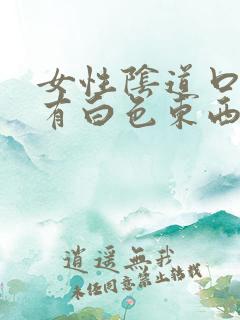 女性陰道口
有白色东西
逍遥無我
未经同意禁止转载